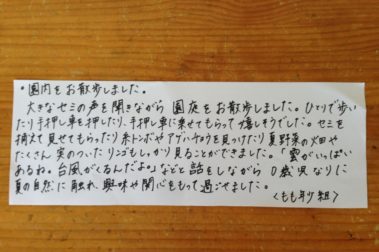 ・園内をお散歩しました。
大きなセミの声を聞きながら 園庭をお散歩しました。ひとりで歩い
たり手押し車を押したり、手押し車に乗せてもらって嬉しそうでした。セミを
捕えて見せてもらったり糸トンボやアゲハチョウを見つけたり夏野菜の畑や
たくさん実のついたリンゴもしっかり見ることができました。「雲がいっぱい
あるね。台風がくるんだよ。」などと話をしながら 0歳児なりに
夏の自然に触れ、興味や関心をもって過ごせました。
<もも年少組>